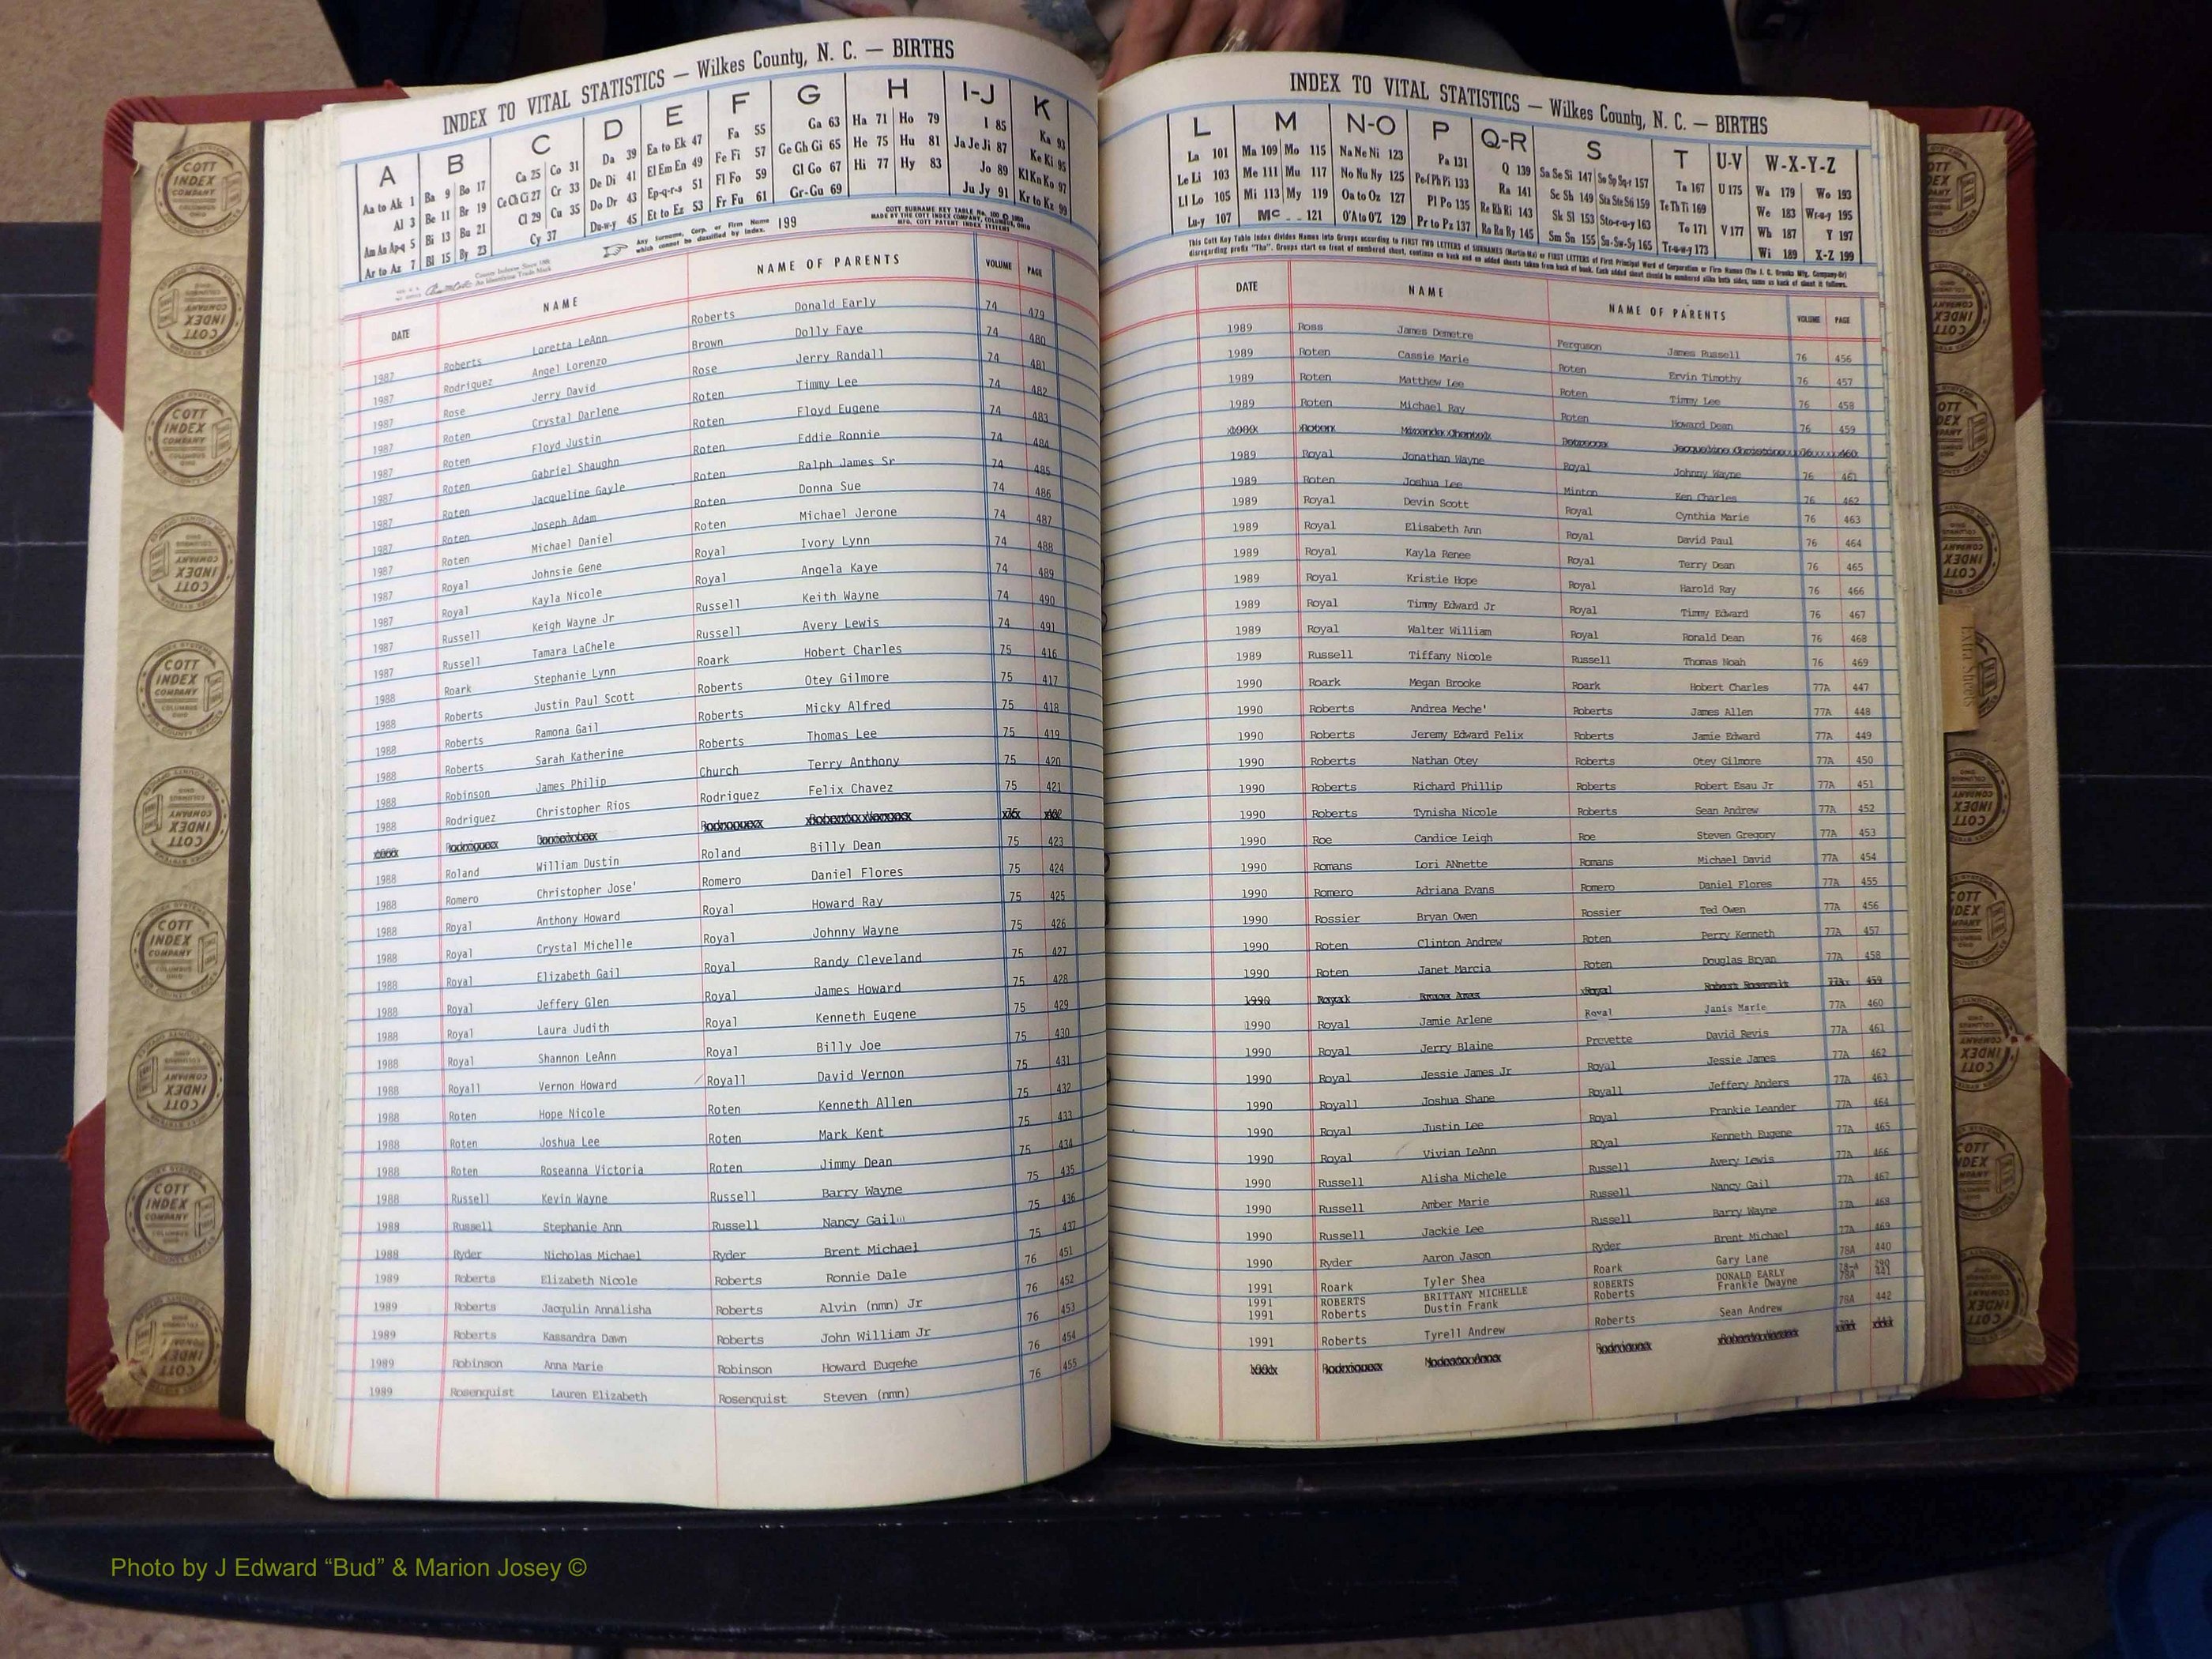 INDEX TO VITAL STATISTICS — Wilkes County, N. C. — BIRTHS
A B C D E F G H I-J K
Aa to Ak 1 Ba 9 Bo 17 Ca 25 Co 31 Da 39 Ea to Ek 47 Fa 55 Ga 63 Ha 71 Ho 79 I 85 Ka 93
Al 3 Be 11 Br 19 Ce Ch Ci 27 Cr 33 De Di 41 El Em En 49 Fe Fi 57 Ge Gh Gi 65 He 75 Hu 81 Ja Je Ji 87 Ke Ki 95
Am An Ap-q 5 Bi 13 Bu 21 Cl 29 Cu 35 Do Dr 43 Ep-q-r-s 51 Fl Fo 59 Gl Go 67 Hi 77 Hy 83 Jo 89 Kl Kn Ko 97
Ar to Az 7 Bl 15 By 23 Cy 37 Du-w-y 45 Et to Ez 53 Fr Fu 61 Gr-Gu 69 Ju Jy 91 Kr to Kz 99
Any Surname, Corp. or Firm Name which cannot be classified by Index. 199
DATE NAME NAME OF PARENTS VOLUME PAGE
1987 Roberts Loretta LeAnn Roberts Donald Early 74 479
1987 Rodriquez Angel Lorenzo Brown Dolly Faye 74 480
1987 Rose Jerry David Rose Jerry Randall 74 481
1987 Roten Crystal Darlene Roten Timmy Lee 74 482
1987 Roten Floyd Justin Roten Floyd Eugene 74 483
1987 Roten Gabriel Shaughn Roten Eddie Ronnie 74 484
1987 Roten Jacqueline Gayle Roten Ralph James Sr 74 485
1987 Roten Joseph Adam Roten Donna Sue 74 486
1987 Roten Michael Daniel Roten Michael Jerone 74 487
1987 Royal Johnsie Gene Royal Ivory Lynn 74 488
1987 Royal Kayla Nicole Royal Angela Kaye 74 489
1987 Russell Keigh Wayne Jr Russell Keith Wayne 74 490
1987 Russell Tamara LaChele Russell Avery Lewis 74 491
1988 Roark Stephanie Lynn Roark Hobert Charles 75 416
1988 Roberts Justin Paul Scott Roberts Otey Gilmore 75 417
1988 Roberts Ramona Gail Roberts Micky Alfred 75 418
1988 Roberts Sarah Katherine Roberts Thomas Lee 75 419
1988 Robinson James Philip Church Terry Anthony 75 420
1988 Rodriguez Christopher Rios Rodriguez Felix Chavez 75 421
1988 Roland William Dustin Roland Billy Dean 75 423
1988 Romero Christopher Jose' Romero Daniel Flores 75 424
1988 Royal Anthony Howard Royal Howard Ray 75 425
1988 Royal Crystal Michelle Royal Johnny Wayne 75 426
1988 Royal Elizabeth Gail Royal Randy Cleveland 75 427
1988 Royal Jeffery Glen Royal James Howard 75 428
1988 Royal Laura Judith Royal Kenneth Eugene 75 429
1988 Royal Shannon LeAnn Royal Billy Joe 75 430
1988 Royall Vernon Howard Royall David Vernon 75 431
1988 Roten Hope Nicole Roten Kenneth Allen 75 432
1988 Roten Joshua Lee Roten Mark Kent 75 433
1988 Roten Roseanna Victoria Roten Jimmy Dean 75 434
1988 Russell Kevin Wayne Russell Barry Wayne 75 435
1988 Russell Stephanie Ann Russell Nancy Gail 75 436
1988 Ryder Nicholas Michael Ryder Brent Michael 75 437
1989 Roberts Elizabeth Nicole Roberts Ronnie Dale 76 451
1989 Roberts Jacqulin Annalisha Roberts Alvin (nmn) Jr 76 452
1989 Roberts Kassandra Dawn Roberts John William Jr 76 453
1989 Robinson Anna Marie Robinson Howard Eugehe 76 454
1989 Rosenquist Lauren Elizabeth Rosenquist Steven (nmn) 76 455
INDEX TO VITAL STATISTICS — Wilkes County, N. C. — BIRTHS
L M N-O P Q-R S T U-V W-X-Y-Z
La 101 Ma 109 Mo 115 Na Ne Ni 123 Pa 131 Q 139 Sa Se Si 147 So Sp Sq-r 157 Ta 167 U 175 Wa 179 Wo 193
Le Li 103 Me 111 Mu 117 No Nu Ny 125 Pe-f Ph Pi 133 Ra 141 Sc Sh 149 Sta Ste Sti 159 Te Th Ti 169 We 183 Wr-u-y 195
Ll Lo 105 Mi 113 My 119 Oa to Oz 127 Pl Po 135 Re Rh Ri 143 Sk Sl 153 Sto-r-u-y 163 To 171 V 177 Wh 187 Y 197
Lu-y 107 Mc 121 O'A to O'Z 129 Pr to Pz 137 Ro Ru Ry 145 Sm Sn 155 Su-Sw-Sy 165 Tr-u-w-y 173 Wi 189 X-Z 199
This Cott Key Table Index divides Names into Groups according to FIRST TWO LETTERS of SURNAMES
DATE NAME NAME OF PARENTS VOLUME PAGE
1989 Ross James Demetre Ferguson James Russell 76 456
1989 Roten Cassie Marie Roten Ervin Timothy 76 457
1989 Roten Matthew Lee Roten Timmy Lee 76 458
1989 Roten Michael Ray Roten Howard Dean 76 459
1989 Royal Jonathan Wayne Royal Johnny Wayne 76 461
1989 Roten Joshua Lee Minton Ken Charles 76 462
1989 Royal Devin Scott Royal Cynthia Marie 76 463
1989 Royal Elisabeth Ann Royal David Paul 76 464
1989 Royal Kayla Renee Royal Terry Dean 76 465
1989 Royal Kristie Hope Royal Harold Ray 76 466
1989 Royal Timmy Edward Jr Royal Timmy Edward 76 467
1989 Royal Walter William Royal Ronald Dean 76 468
1989 Russell Tiffany Nicole Russell Thomas Noah 76 469
1990 Roark Megan Brooke Roark Hobert Charles 77A 447
1990 Roberts Andrea Meche' Roberts James Allen 77A 448
1990 Roberts Jeremy Edward Felix Roberts Jamie Edward 77A 449
1990 Roberts Nathan Otey Roberts Otey Gilmore 77A 450
1990 Roberts Richard Phillip Roberts Robert Esau Jr 77A 451
1990 Roberts Tynisha Nicole Roberts Sean Andrew 77A 452
1990 Roe Candice Leigh Roe Steven Gregory 77A 453
1990 Romans Lori ANnette Romans Michael David 77A 454
1990 Romero Adriana Evans Romero Daniel Flores 77A 455
1990 Rossier Bryan Owen Rossier Ted Owen 77A 456
1990 Roten Clinton Andrew Roten Perry Kenneth 77A 457
1990 Roten Janet Marcia Roten Douglas Bryan 77A 458
1990 Royal Jamie Arlene Royal Janis Marie 77A 460
1990 Royal Jerry Blaine Prevette David Revis 77A 461
1990 Royal Jessie James Jr Royal Jessie James 77A 462
1990 Royall Joshua Shane Royall Jeffery Anders 77A 463
1990 Royal Justin Lee Royal Frankie Leander 77A 464
1990 Royal Vivian LeAnn ROyal Kenneth Eugene 77A 465
1990 Russell Alisha Michele Russell Avery Lewis 77A 466
1990 Russell Amber Marie Russell Nancy Gail 77A 467
1990 Russell Jackie Lee Russell Barry Wayne 77A 468
1990 Ryder Aaron Jason Ryder Brent Michael 77A 469
1991 Roark Tyler Shea Roark Gary Lane 78A 440
1991 ROBERTS BRITTANY MICHELLE ROBERTS DONALD EARLY 78-A 290
1991 Roberts Dustin Frank Roberts Frankie Dwayne 78A 441
1991 Roberts Tyrell Andrew Roberts Sean Andrew 78A 442
Extra Sheets
COTT INDEX COMPANY COLUMBUS OHIO
Photo by J Edward “Bud” & Marion Josey ©